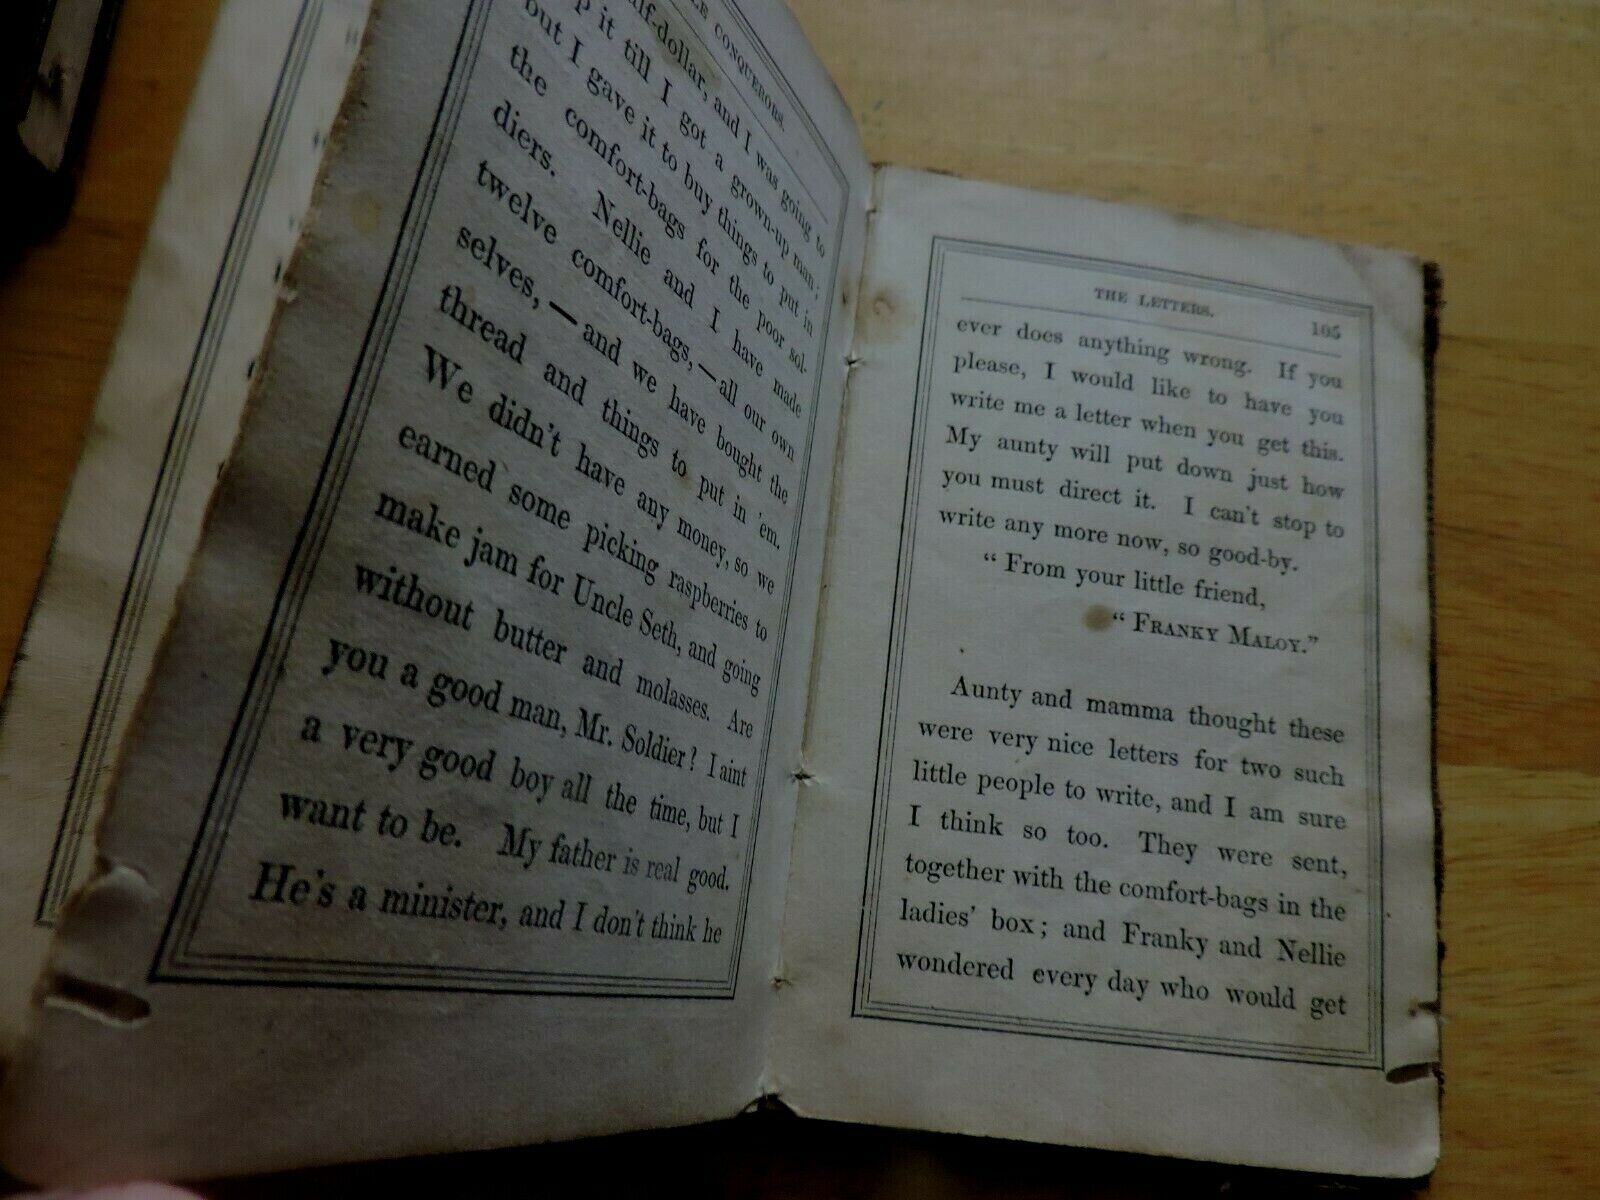 LE CONQUERORS.
half-dollar, and I was going to
p it till I got a grown-up man;
but I gave it to buy things to put in
the comfort-bags for the poor sol-
diers. Nellie and I have made
twelve comfort-bags,—all our own
selves,—and we have bought the
thread and things to put in 'em.
We didn't have any money, so we
earned some picking raspberries to
make jam for Uncle Seth, and going
without butter and molasses. Are
you a good man, Mr. Soldier? I aint
a very good boy all the time, but I
want to be. My father is real good.
He's a minister, and I don't think he
THE LETTERS. 105
ever does anything wrong. If you
please, I would like to have you
write me a letter when you get this.
My aunty will put down just how
you must direct it. I can't stop to
write any more now, so good-by.
"From your little friend,
"FRANKY MALOY."
Aunty and mamma thought these
were very nice letters for two such
little people to write, and I am sure
I think so too. They were sent,
together with the comfort-bags in the
ladies' box; and Franky and Nellie
wondered every day who would get